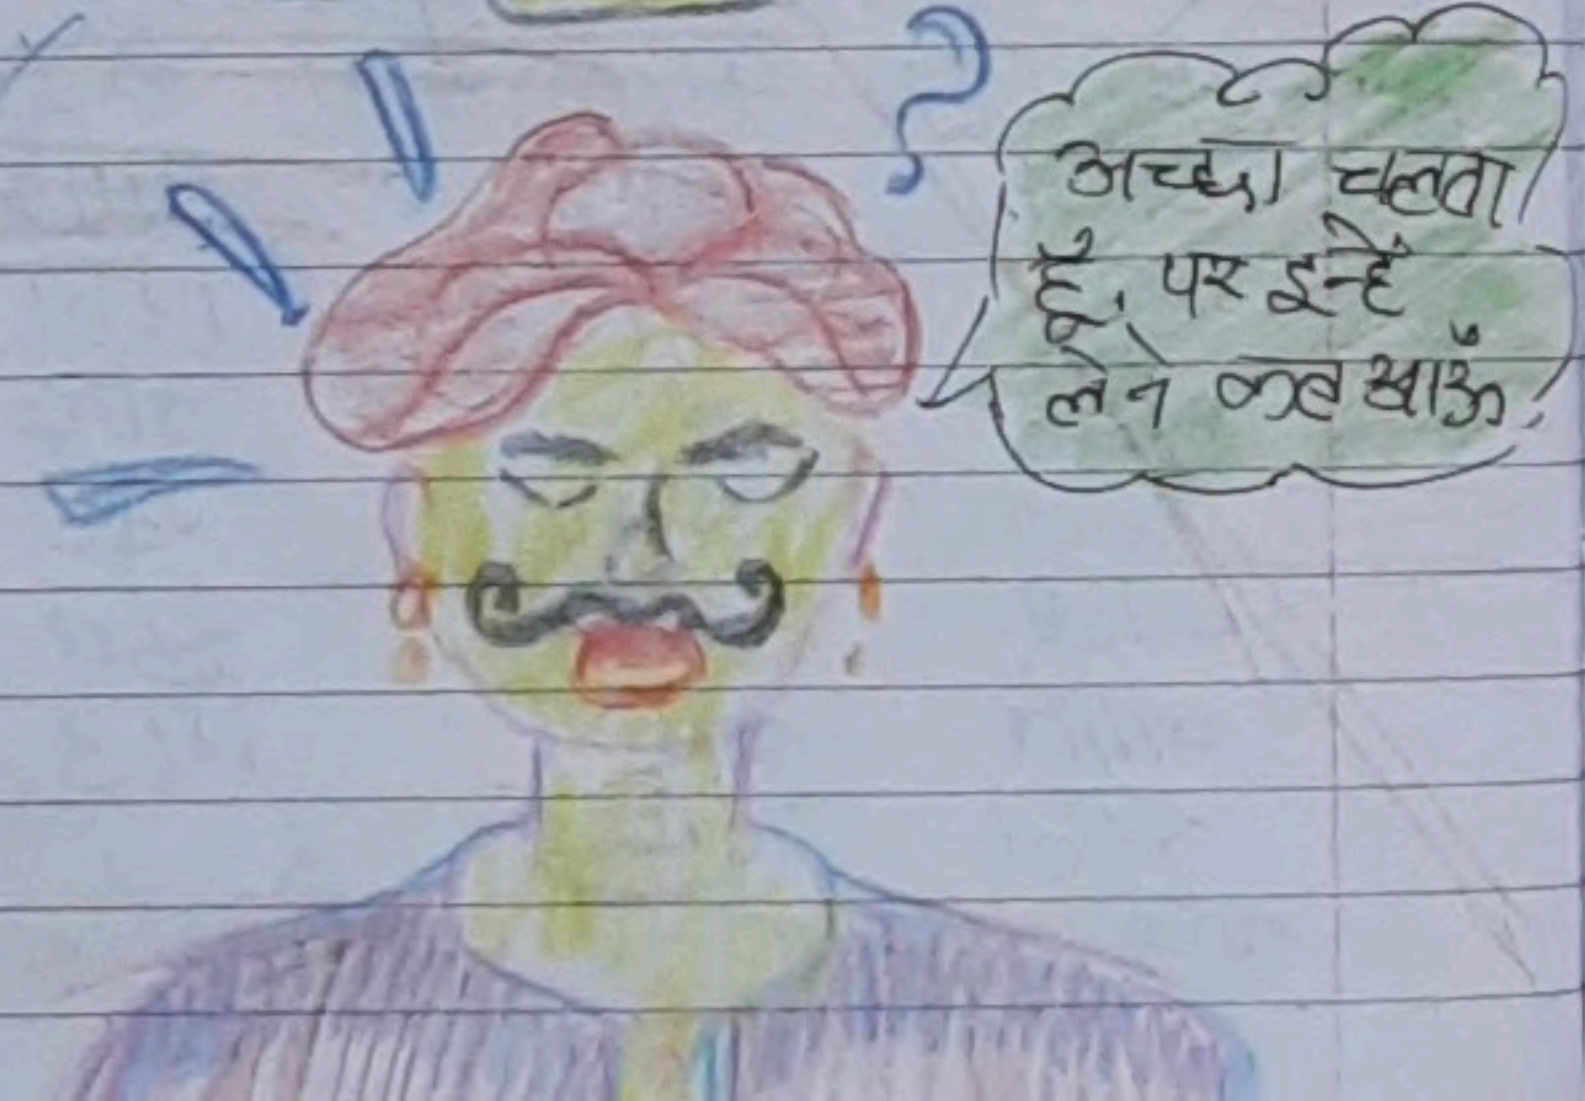 अच्छा चलता
हूँ, पर इन्हें
लेने कब आऊँ